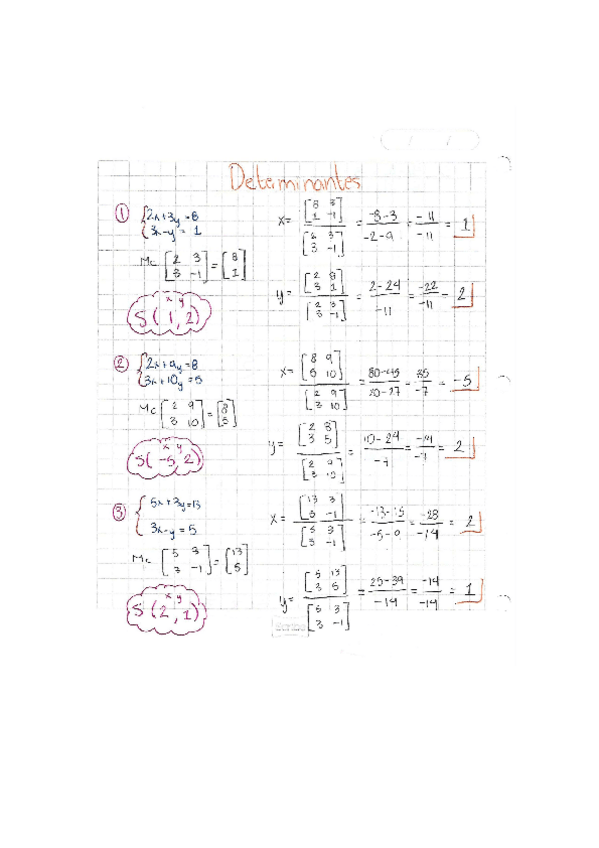 Determinantes
① { 2x+3y=8
3x-y = 1
Mc [2 3 / 3 -1] = [8 / 1]
x y
S( 1, 2)
x= [8 3 / 1 -1] / [2 3 / 3 -1] = -8-3 / -2-9 = -11 / -11 = 1
y= [2 8 / 3 1] / [2 3 / 3 -1] = 2-24 / -11 = -22 / -11 = 2
② { 2x+9y=8
3x+10y=5
Mc [2 9 / 3 10] = [8 / 5]
x y
S( -5, 2)
x= [8 9 / 5 10] / [2 9 / 3 10] = 80-45 / 20-27 = 35 / -7 = -5
y= [2 8 / 3 5] / [2 9 / 3 10] = 10-24 / -7 = -14 / -7 = 2
③ { 5x+3y=13
3x-y=5
Mc [5 3 / 3 -1] = [13 / 5]
x y
S (2, 1)
x= [13 3 / 5 -1] / [5 3 / 3 -1] = -13-15 / -5-9 = -28 / -14 = 2
y= [5 13 / 3 5] / [5 3 / 3 -1] = 25-39 / -14 = -14 / -14 = 1